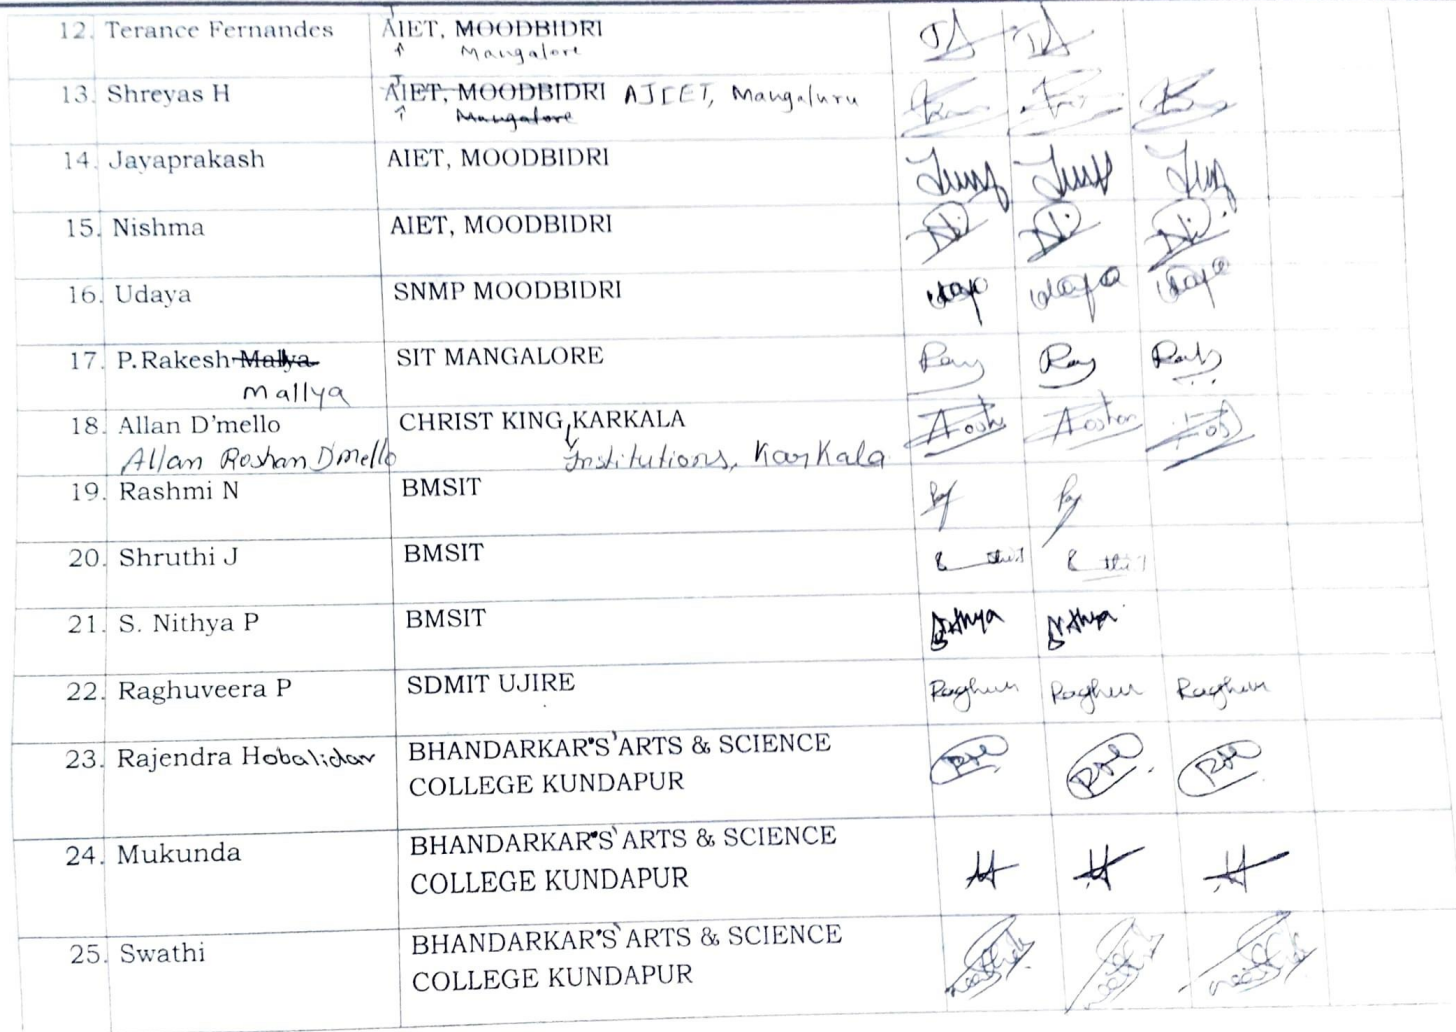 12. Terance Fernandes AIET, MOODBIDRI
J
Mangalore
13. Shreyas H AIET, MOODBIDRI AJIET, Mangaluru
J
Mangalore
14. Jayaprakash AIET, MOODBIDRI
15. Nishma AIET, MOODBIDRI
16. Udaya SNMP MOODBIDRI
17. P.Rakesh Malya SIT MANGALORE
Mallya
18. Allan D'mello CHRIST KING, KARKALA
Allan Roshan D'mello Institutions, Karkala
19. Rashmi N BMSIT
20. Shruthi J BMSIT
21. S. Nithya P BMSIT
22. Raghuveera P SDMIT UJIRE Raghu Raghu Raghu
23. Rajendra Hobalidar BHANDARKAR'S' ARTS & SCIENCE
COLLEGE KUNDAPUR
24. Mukunda BHANDARKAR'S' ARTS & SCIENCE
COLLEGE KUNDAPUR
25. Swathi BHANDARKAR'S' ARTS & SCIENCE
COLLEGE KUNDAPUR